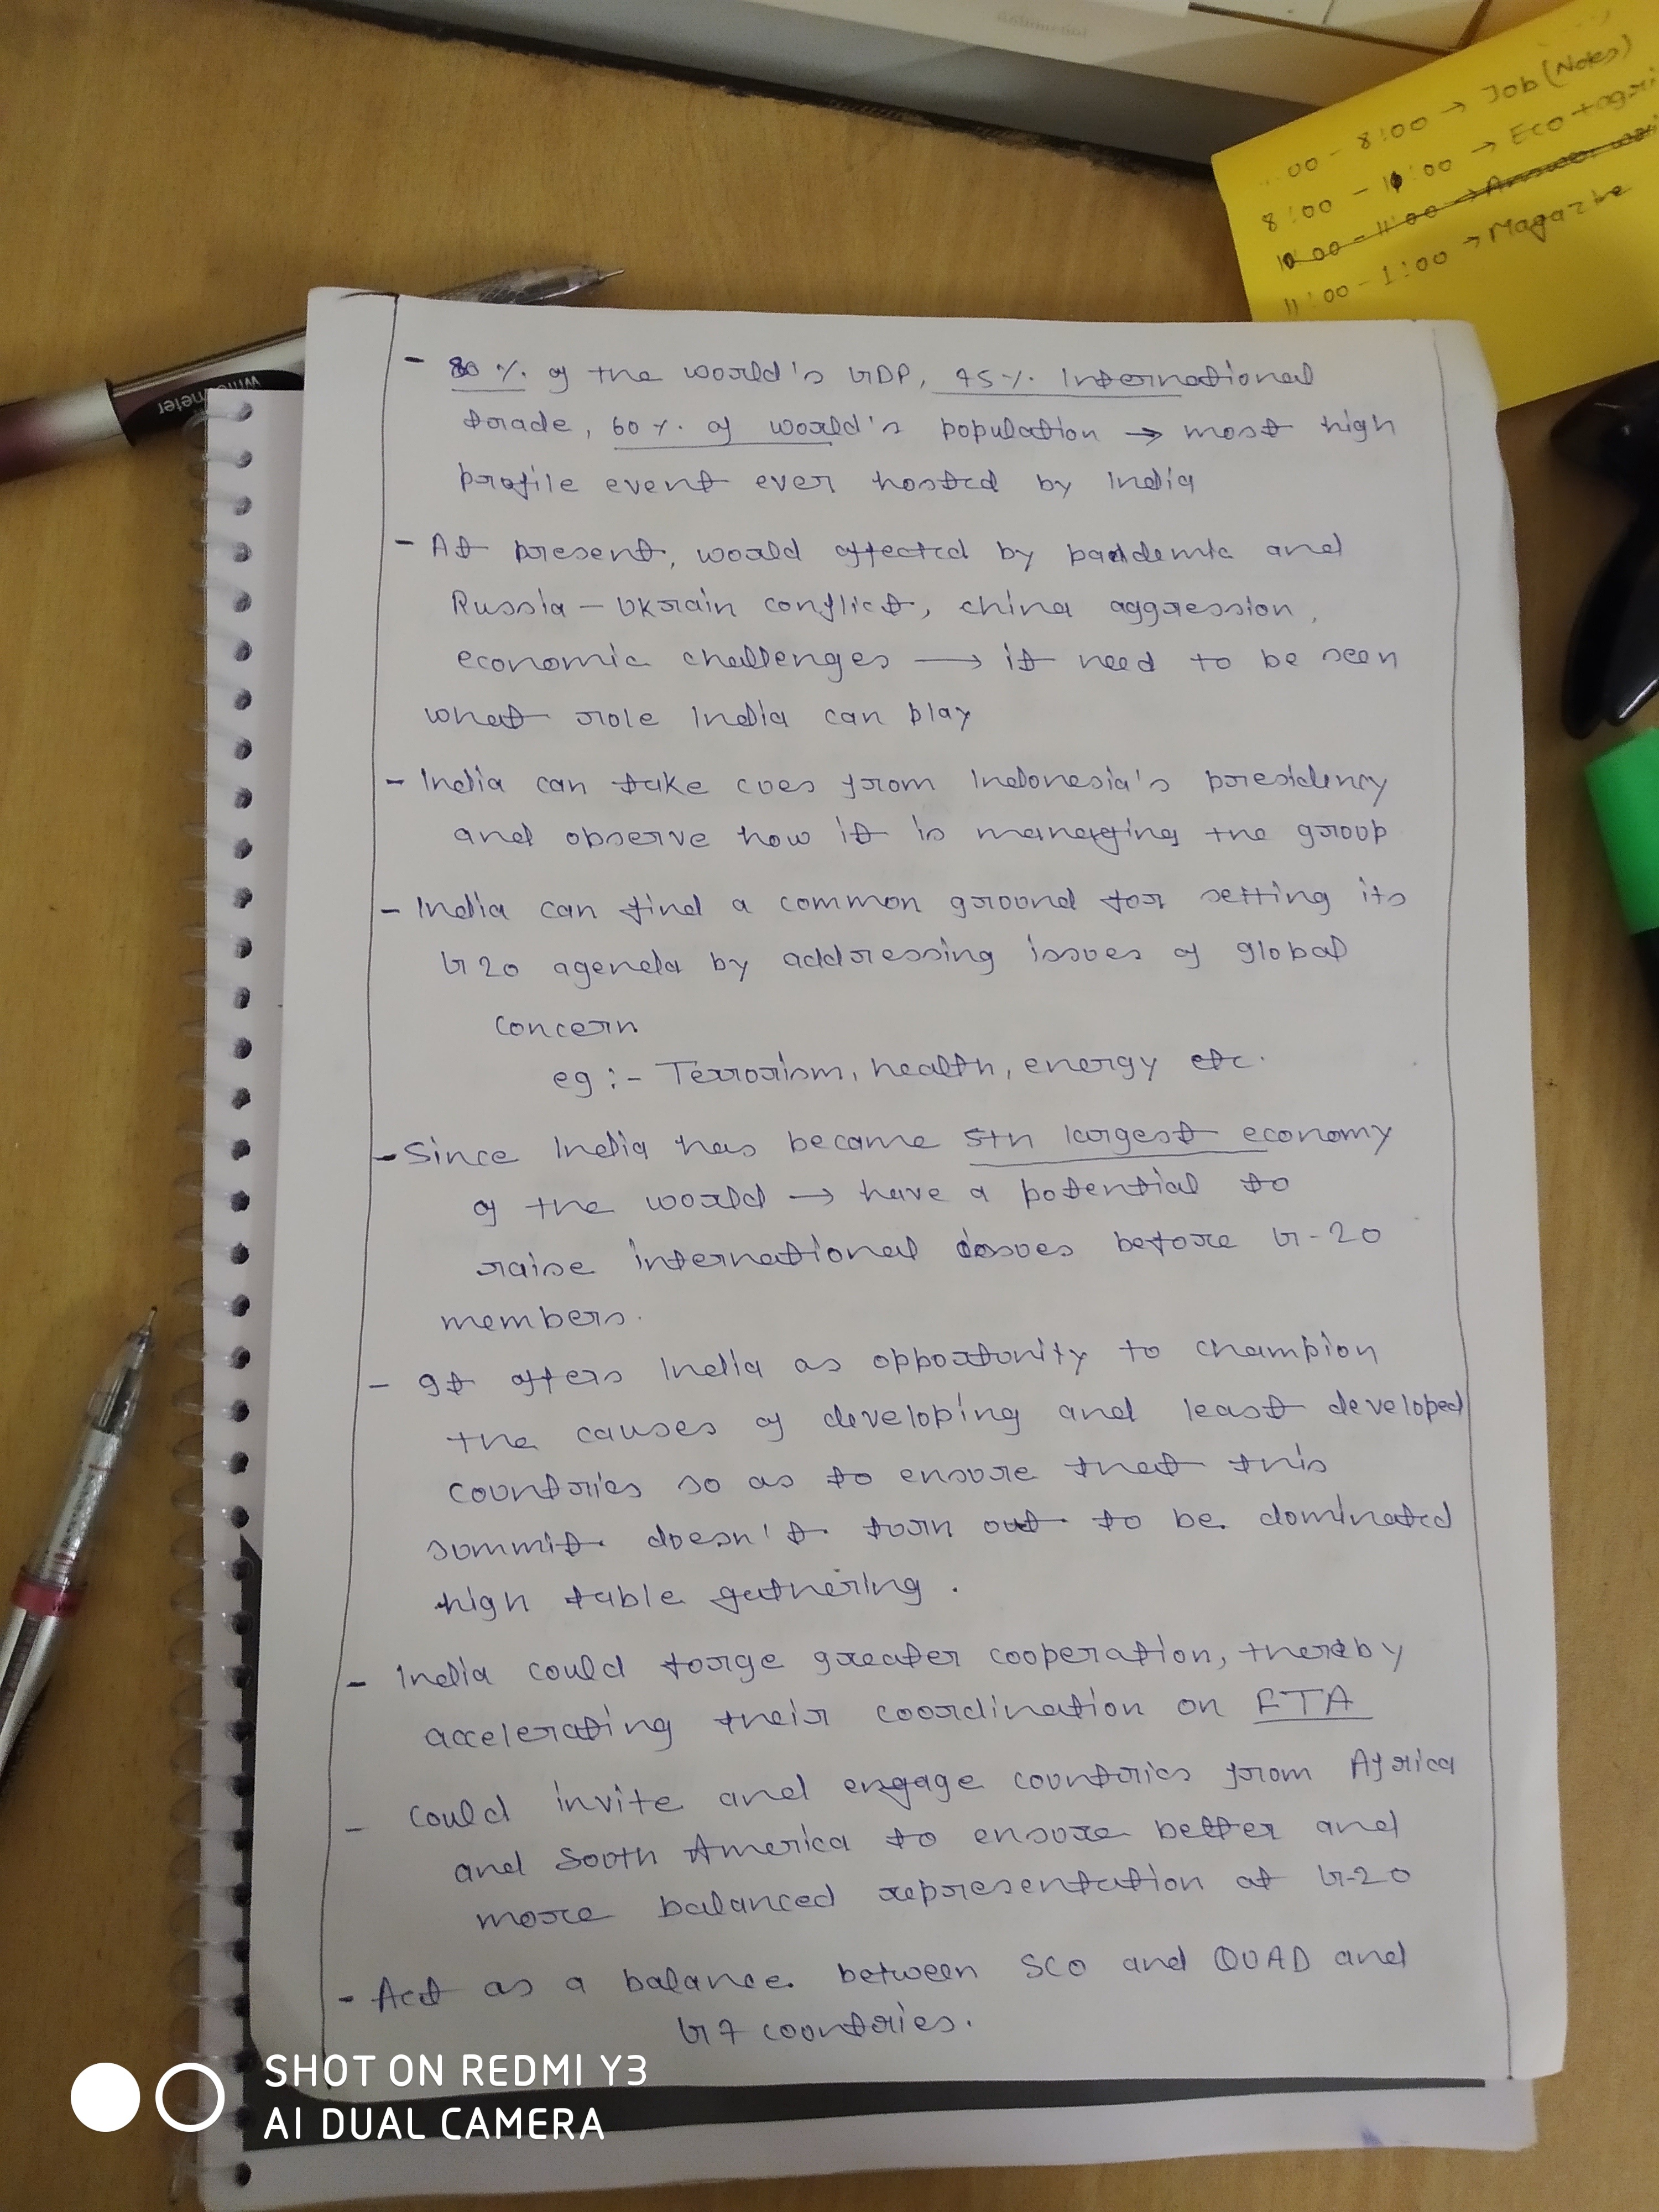 00 - 8:00 → Job (Notes)
8:00 - 10:00 → Eco + agri
10:00 - 11:00 →
11:00 - 1:00 → Magazine
- 80 % of the world's GDP, 75 %. International
trade, 60 %. of world's population → most high
profile event ever hosted by India
- At present, world affected by pandemic and
Russia - Ukrain conflict, china aggression,
economic challenges → it need to be seen
what role India can play
- India can take cues from Indonesia's presidency
and observe how it is managing the group
- India can find a common ground for setting its
G20 agenda by addressing issues of global
concern
eg :- Terrorism, health, energy etc.
- Since India has became 5th largest economy
of the world → have a potential to
raise international issues before G-20
members.
- It offers India as opportunity to champion
the causes of developing and least developed
countries so as to ensure that this
summit doesn't turn out to be dominated
high table gathering.
- India could forge greater cooperation, thereby
accelerating their coordination on FTA
- could invite and engage countries from Africa
and South America to ensure better and
more balanced representation at G-20
- Act as a balance between SCO and QUAD and
G7 countries.
SHOT ON REDMI Y3
AI DUAL CAMERA